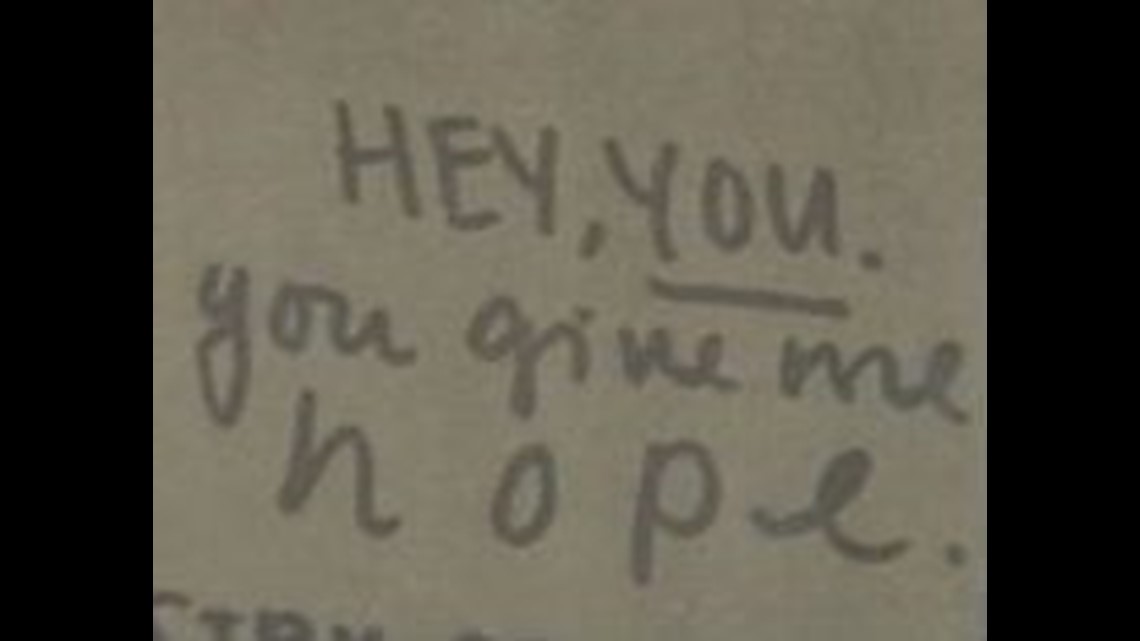 HEY, YOU.
you give me
hope.